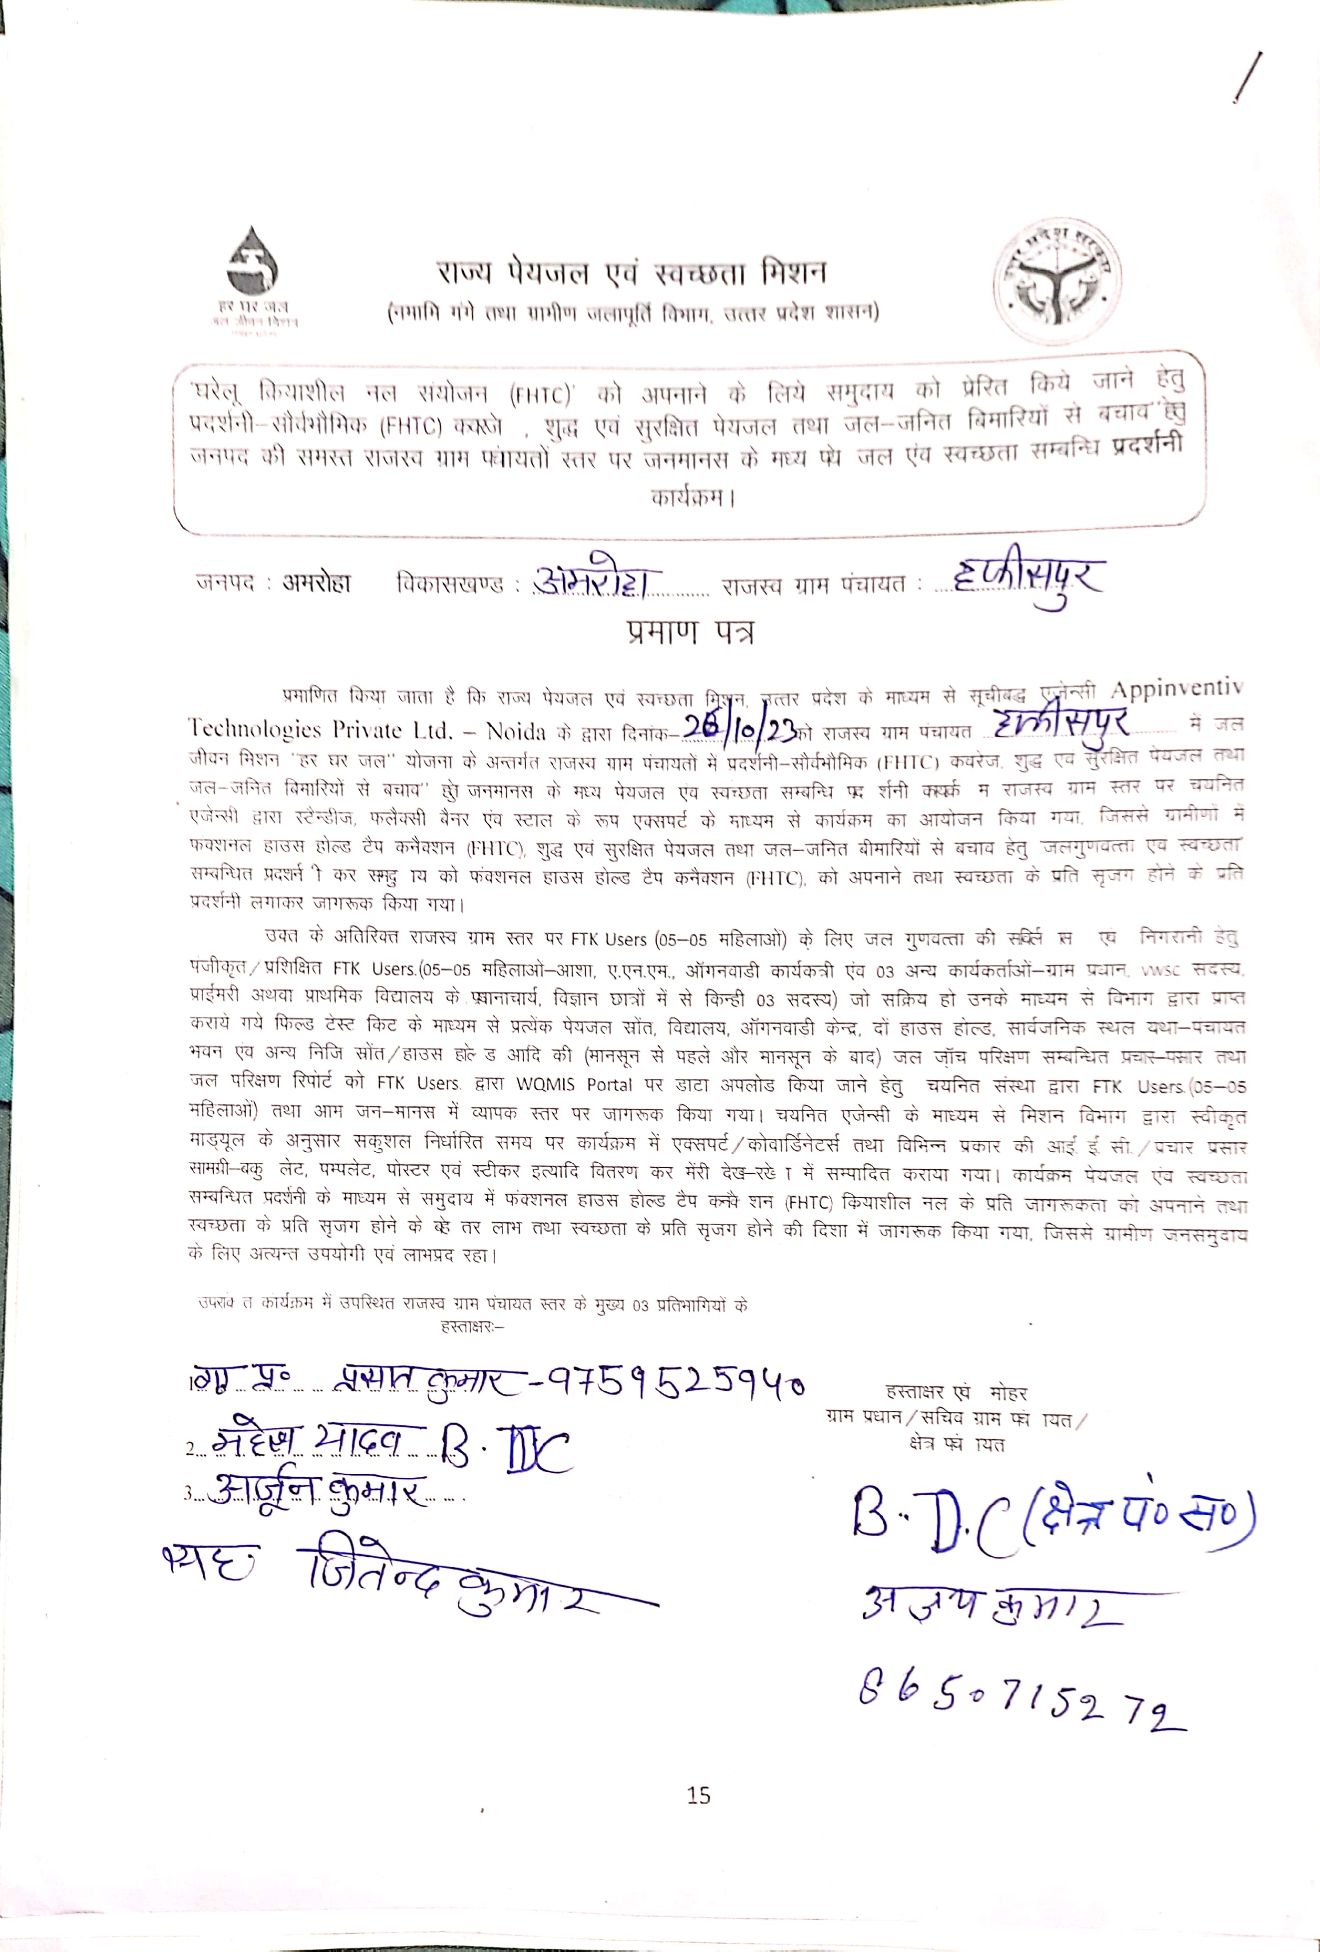 /
हर घर जल
जल जीवन मिशन
उत्तर प्रदेश सरकार
राज्य पेयजल एवं स्वच्छता मिशन
(नमामि गंगे तथा ग्रामीण जलापूर्ति विभाग, उत्तर प्रदेश शासन)
'घरेलू कियाशील नल संयोजन (FHTC)' को अपनाने के लिये समुदाय को प्रेरित किये जाने हेतु
प्रदर्शनी–सौर्वभौमिक (FHTC) , शुद्ध एवं सुरक्षित पेयजल तथा जल–जनित बिमारियों से बचाव" हेतु
जनपद की समस्त राजस्व ग्राम पंचायतों स्तर पर जनमानस के मध्य पेय जल एंव स्वच्छता सम्बन्धि प्रदर्शनी
कार्यक्रम।
जनपद : अमरोहा विकासखण्ड : अमरोहा राजस्व ग्राम पंचायत : हफीसपुर
प्रमाण पत्र
प्रमाणित किया जाता है कि राज्य पेयजल एवं स्वच्छता मिशन, उत्तर प्रदेश के माध्यम से सूचीबद्ध एजेन्सी Appinventiv
Technologies Private Ltd. – Noida के द्वारा दिनांक– 26/10/23 को राजस्व ग्राम पंचायत हफीसपुर में जल
जीवन मिशन "हर घर जल" योजना के अन्तर्गत राजस्व ग्राम पंचायतों में प्रदर्शनी–सौर्वभौमिक (FHTC) कवरेज, शुद्ध एवं सुरक्षित पेयजल तथा
जल–जनित बिमारियों से बचाव" हेतु जनमानस के मध्य पेयजल एंव स्वच्छता सम्बन्धि राजस्व ग्राम स्तर पर चयनित
एजेन्सी द्वारा स्टेन्डीज, फलैक्सी बैनर एंव स्टाल के रूप एक्सपर्ट के माध्यम से कार्यक्रम का आयोजन किया गया, जिससे ग्रामीणों में
फंक्शनल हाउस होल्ड टैप कनैक्शन (FHTC), शुद्ध एवं सुरक्षित पेयजल तथा जल–जनित बीमारियों से बचाव हेतु जलगुणवत्ता एंव स्वच्छता
सम्बन्धित प्रदर्शनी कर समुदाय को फंक्शनल हाउस होल्ड टैप कनैक्शन (FHTC), को अपनाने तथा स्वच्छता के प्रति सृजग होने के प्रति
प्रदर्शनी लगाकर जागरूक किया गया।
उक्त के अतिरिक्त राजस्व ग्राम स्तर पर FTK Users (05–05 महिलाओं) के लिए जल गुणवत्ता की एवं निगरानी हेतु
पंजीकृत/प्रशिक्षित FTK Users.(05–05 महिलाओ–आशा, ए.एन.एम., ऑगनवाडी कार्यकत्री एंव 03 अन्य कार्यकर्ताओं–ग्राम प्रधान, VWSC सदस्य,
प्राईमरी अथवा प्राथमिक विद्यालय के प्रधानाचार्य, विज्ञान छात्रों में से किन्ही 03 सदस्य) जो सक्रिय हो उनके माध्यम से विभाग द्वारा प्राप्त
कराये गये फिल्ड टेस्ट किट के माध्यम से प्रत्येंक पेयजल स्रोंत, विद्यालय, ऑगनवाडी केन्द्र, दों हाउस होल्ड, सार्वजनिक स्थल यथा–पंचायत
भवन एंव अन्य निजि स्रोंत/हाउस होल्ड आदि की (मानसून से पहले और मानसून के बाद) जल जॉच परिक्षण सम्बन्धित प्रचार–पसार तथा
जल परिक्षण रिपोर्ट को FTK Users. द्वारा WQMIS Portal पर डाटा अपलोड किया जाने हेतु चयनित संस्था द्वारा FTK Users.(05–05
महिलाओं) तथा आम जन–मानस में व्यापक स्तर पर जागरूक किया गया। चयनित एजेन्सी के माध्यम से मिशन विभाग द्वारा स्वीकृत
माड्यूल के अनुसार सकुशल निर्धारित समय पर कार्यक्रम में एक्सपर्ट/कोवार्डिनेटर्स तथा विभिन्न प्रकार की आई.ई.सी./प्रचार प्रसार
सामग्री–बुकलेट, पम्पलेट, पोस्टर एवं स्टीकर इत्यादि वितरण कर मेंरी देख–रेख में सम्पादित कराया गया। कार्यक्रम पेयजल एंव स्वच्छता
सम्बन्धित प्रदर्शनी के माध्यम से समुदाय में फंक्शनल हाउस होल्ड टैप कनैक्शन (FHTC) कियाशील नल के प्रति जागरूकता को अपनाने तथा
स्वच्छता के प्रति सृजग होने के बेहतर लाभ तथा स्वच्छता के प्रति सृजग होने की दिशा में जागरूक किया गया, जिससे ग्रामीण जनसमुदाय
के लिए अत्यन्त उपयोगी एवं लाभप्रद रहा।
उपरोक्त कार्यक्रम में उपस्थित राजस्व ग्राम पंचायत स्तर के मुख्य 03 प्रतिभागियों के
हस्ताक्षरः–
1. प्र० कुमार - 9759525940
हस्ताक्षर एवं मोहर
ग्राम प्रधान/सचिव ग्राम पंचायत/
क्षेत्र पंचायत
2. महेश यादव B. DC
3. अर्जून कुमार
जितेन्द्र कुमार
B.D.C (क्षेत्र पं० स०)
अजय कुमार
8650715272
15